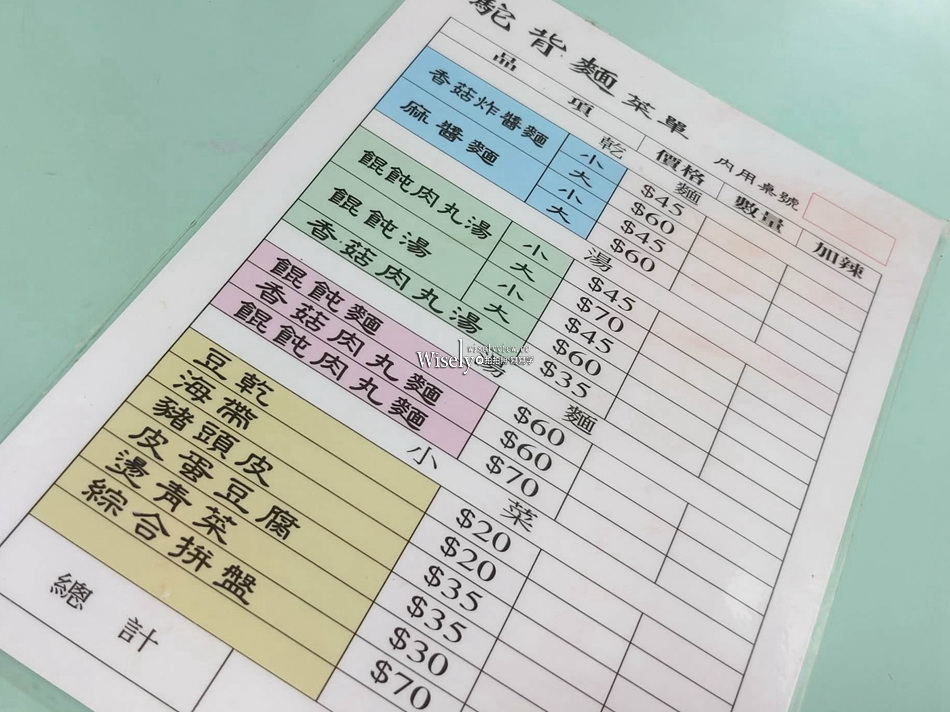 駝背麵菜單
內用桌號
品項 價格 數量 加辣
乾麵
香菇炸醬麵 小 $45
大 $60
麻醬麵 小 $45
大 $60
湯
餛飩肉丸湯 小 $45
大 $70
餛飩湯 小 $45
大 $60
香菇肉丸湯 $35
湯麵
餛飩麵 $60
香菇肉丸麵 $60
餛飩肉丸麵 $70
小菜
豆乾 $20
海帶 $20
豬頭皮 $35
皮蛋豆腐 $35
燙青菜 $30
綜合拼盤 $70
總計
Wisely